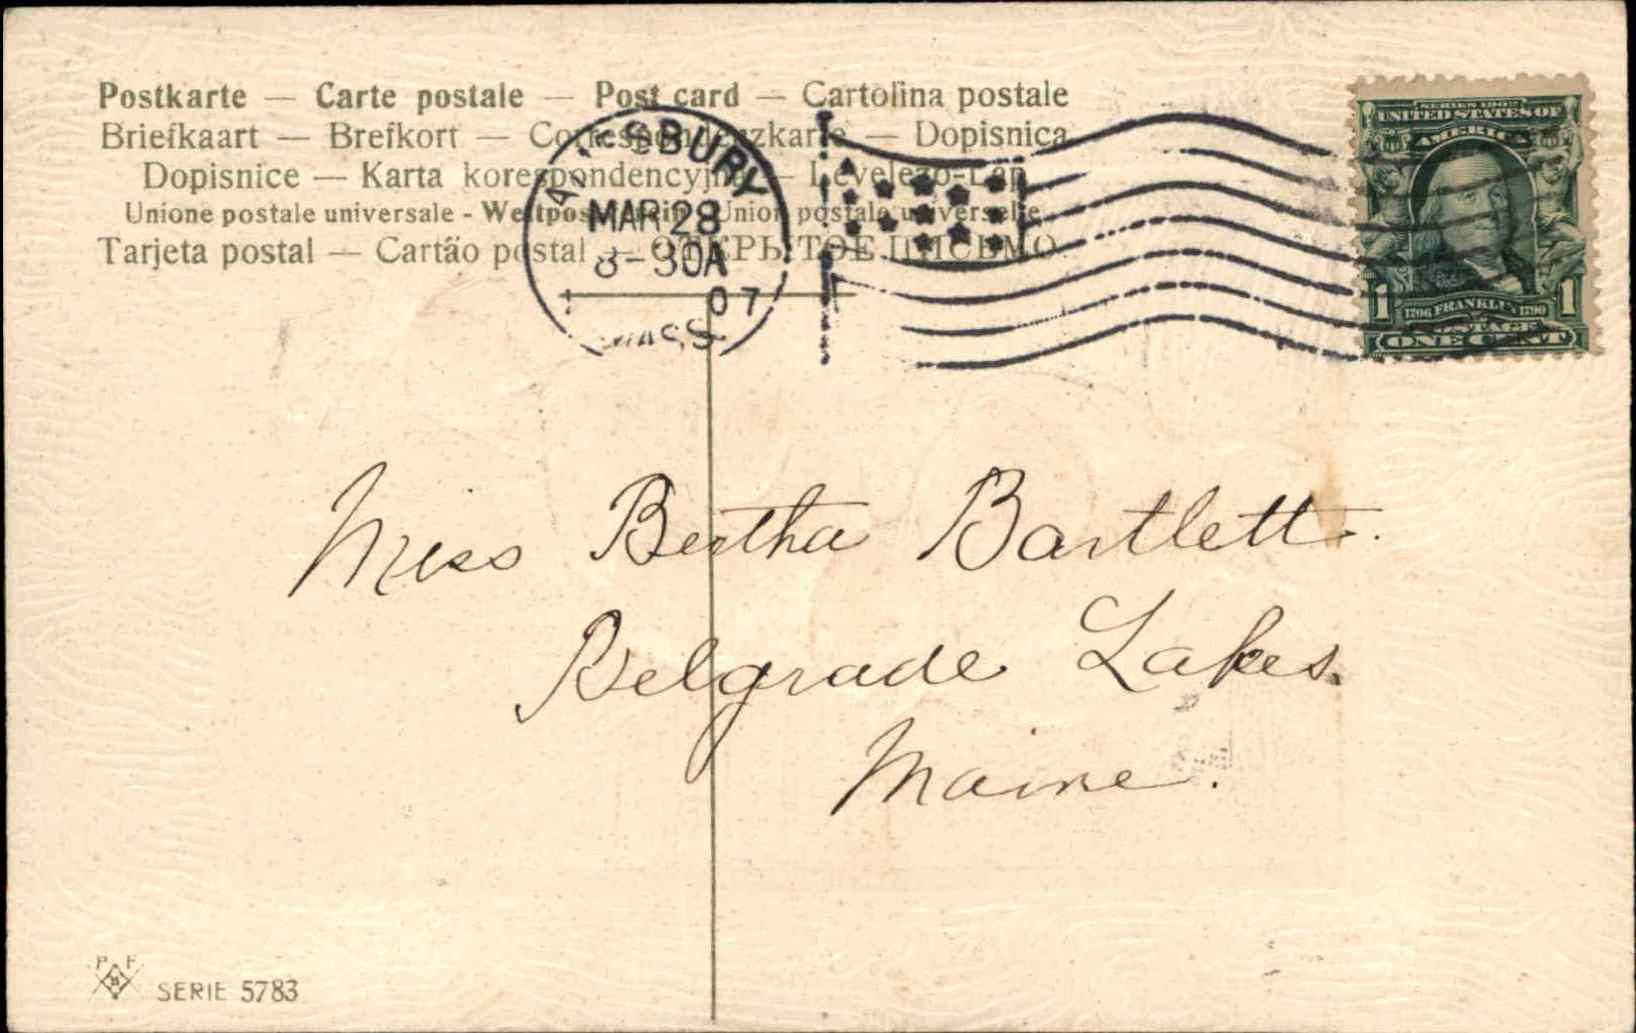 Postkarte — Carte postale — Post card — Cartolina postale
Briefkaart — Brefkort — Correspondenzkarte — Dopisnica
Dopisnice — Karta korespondencyjna — Levelező-Lap
Unione postale universale - Weltpostverein - Union postale universelle
Tarjeta postal — Cartão postal — ОТКРЫТОЕ ПИСЬМО
AMESBURY
MAR 28
8-30A
07
MASS.
SERIES 1902
UNITED STATES OF
AMERICA
1 1706 FRANKLIN 1790 1
POSTAGE
ONE CENT
Miss Bertha Bartlett.
Belgrade Lakes.
Maine.
P F
B
SERIE 5783